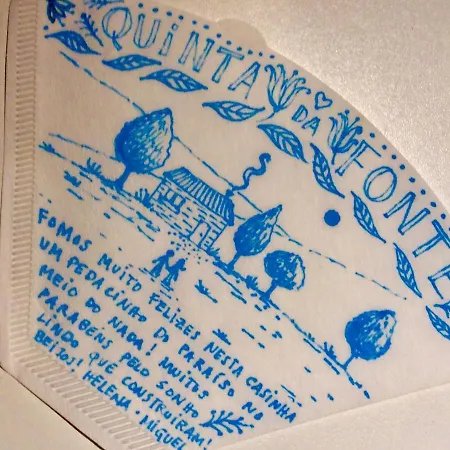 QUINTA DA FONTE
FOMOS MUITO FELIZES NESTA CASINHA
UM PEDACINHO DO PARAÍSO NO
MEIO DO NADA! MUITOS
PARABÉNS PELO SONHO
LINDO QUE CONSTRUIRAM!
BEIJOS! HELENA · MIGUEL